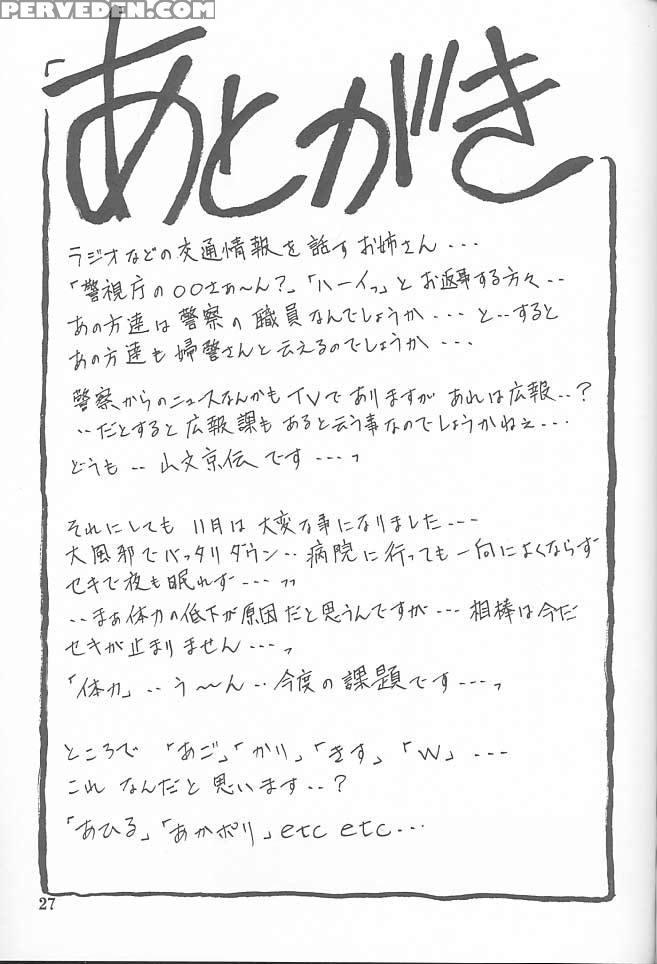 PERVEDEN.COM
「あとがき
ラジオなどの交通情報を話すお姉さん...
「警視庁の○○さぁ〜ん?」「ハーイっ」とお返事する方々..
あの方達は警察の職員なんでしょうか...と..すると
あの方達も婦警さんと云えるのでしょうか...
警察からのニュースなんかもTVでありますがあれは広報..?
..だとすると広報課もあると云う事なのでしょうかねぇ...
どうも..山文京伝です...っ
それにしても11月は大変な事になりました...
大風邪でバッタリダウン..病院に行っても一向によくならず
セキで夜も眠れず...っっ
..まぁ体力の低下が原因だと思うんですが...相棒は今だ
セキが止まりません...っ
「体力」..う〜〜ん..今度の課題です...っ
ところで「あご」「かり」「きす」「W」...
これなんだと思います..?
「あひる」「あかポリ」etc etc...
27